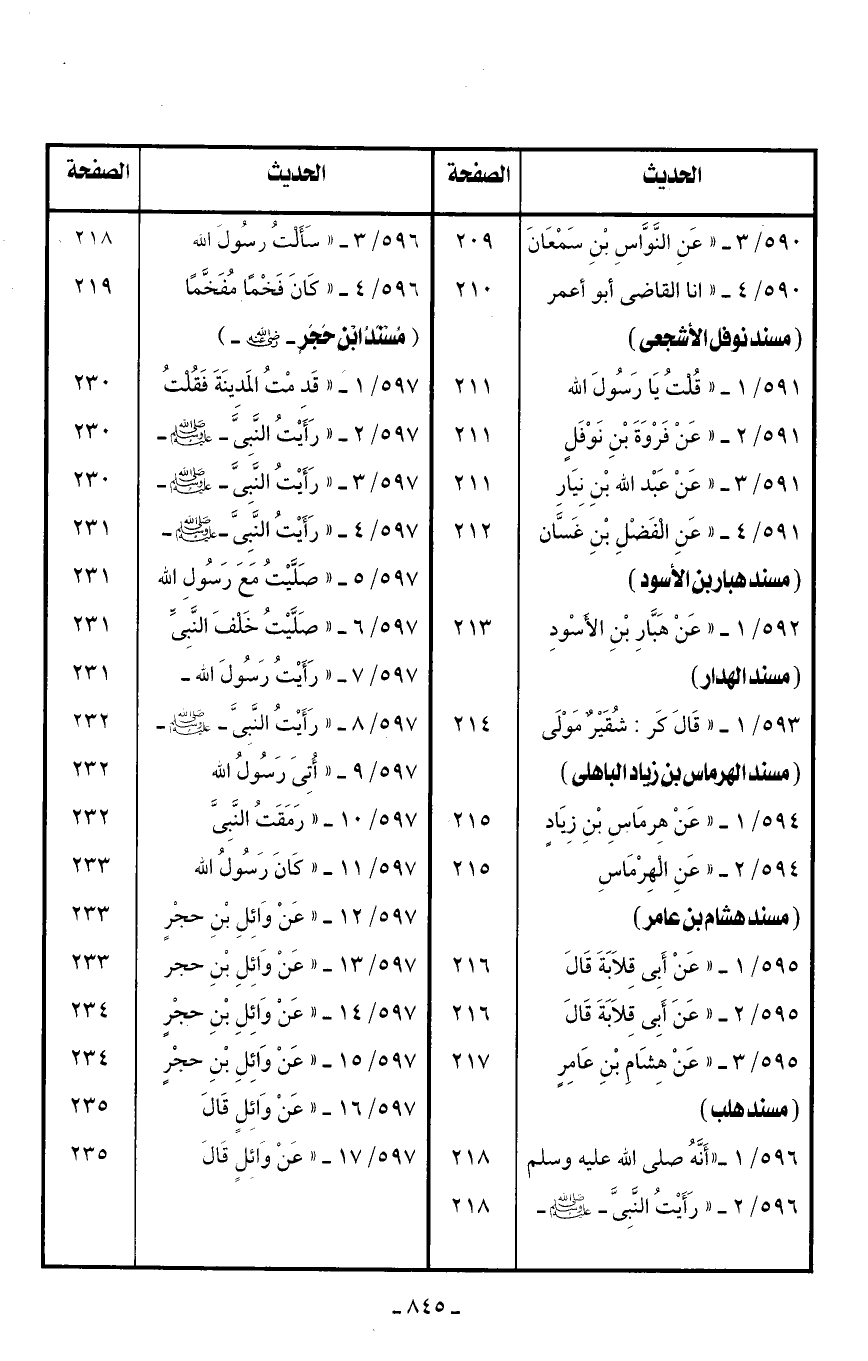 الحديث
الصفحة
٥٩٠/ ٣ ـ « عَنِ النَّوَّاسِ بْنِ سَمْعَانَ
٢٠٩
٥٩٠/ ٤ ـ « انا القاضى أبو أعمر
٢١٠
( مسند نوفل الأشجعى )
٥٩١/ ١ ـ « قُلْتُ يَا رَسُولَ الله
٢١١
٥٩١/ ٢ ـ « عَنْ فَرْوَةَ بْنِ نَوْفَلٍ
٢١١
٥٩١/ ٣ ـ « عَنْ عَبْد الله بْنِ نِيَارِ
٢١١
٥٩١/ ٤ ـ « عَنِ الْفَضْلِ بْنِ غَسَّان
٢١٢
( مسند هبار بن الأسود )
٥٩٢/ ١ ـ « عَنْ هَبَّارِ بْنِ الأَسْودِ
٢١٣
( مسند الهدار )
٥٩٣/ ١ ـ « قَالَ كَر : شُقَيْرٌ مَوْلَى
٢١٤
( مسند الهرماس بن زياد الباهلى )
٥٩٤/ ١ ـ « عَنْ هِرمَاسِ بْنِ زِيَادٍ
٢١٥
٥٩٤/ ٢ ـ « عَنِ الْهِرْمَاسِ
٢١٥
( مسند هشام بن عامر )
٥٩٥/ ١ ـ « عَنْ أَبِى قِلاَبَةَ قَالَ
٢١٦
٥٩٥/ ٢ ـ « عَنَ أَبِى قِلاَبَةَ قَالَ
٢١٦
٥٩٥/ ٣ ـ « عَنْ هِشَامِ بْنِ عَامِرٍ
٢١٧
( مسند هلب )
٥٩٦/ ١ ـ « أَنَّهُ صلى الله عليه وسلم
٢١٨
٥٩٦/ ٢ ـ « رَأَيْتُ النَّبِىَّ ـ ﷺ ـ
٢١٨
الحديث
الصفحة
٥٩٦/ ٣ ـ « سَأَلْتُ رَسُولَ الله
٢١٨
٥٩٦/ ٤ ـ « كَانَ فَخْمًا مُفَخَّمًا
٢١٩
( مُسْنَدُ ابْنِ حُجْرٍ ـ رضي الله عنه ـ )
٥٩٧/ ١ ـ « قَدِ مْتُ المَدِينَةَ فَقُلْتُ
٢٣٠
٥٩٧/ ٢ ـ « رَأَيْتُ النَّبِىَّ ـ ﷺ ـ
٢٣٠
٥٩٧/ ٣ ـ « رَأَيْتُ النَّبِىَّ ـ ﷺ ـ
٢٣٠
٥٩٧/ ٤ ـ « رَأَيْتُ النَّبِىَّ ـ ﷺ ـ
٢٣١
٥٩٧/ ٥ ـ « صَلَّيْتُ مَعَ رَسُولِ الله
٢٣١
٥٩٧/ ٦ ـ « صَلَّيْتُ خَلْفَ النَّبِىِّ
٢٣١
٥٩٧/ ٧ ـ « رَأَيْتُ رَسُولَ الله ـ
٢٣١
٥٩٧/ ٨ ـ « رَأَيْتُ النَّبِىَّ ـ ﷺ ـ
٢٣٢
٥٩٧/ ٩ ـ « أُتِىَ رَسُولُ الله
٢٣٢
٥٩٧/ ١٠ ـ « رَمَقَتُ النَّبِىَّ
٢٣٢
٥٩٧/ ١١ ـ « كَانَ رَسُولُ الله
٢٣٣
٥٩٧/ ١٢ ـ « عَنْ وَائِلِ بْنِ حجْرٍ
٢٣٣
٥٩٧/ ١٣ ـ « عَنْ وَائِلِ بْنِ حجر
٢٣٣
٥٩٧/ ١٤ ـ « عَنْ وَائِلِ بْنِ حجْرٍ
٢٣٤
٥٩٧/ ١٥ ـ « عَنْ وَائِلِ بْنِ حجْرٍ
٢٣٤
٥٩٧/ ١٦ ـ « عَنْ وَائِلٍ قَالَ
٢٣٥
٥٩٧/ ١٧ ـ « عَنْ وَائِلٍ قَالَ
٢٣٥
ـ ٨٤٥ ـ